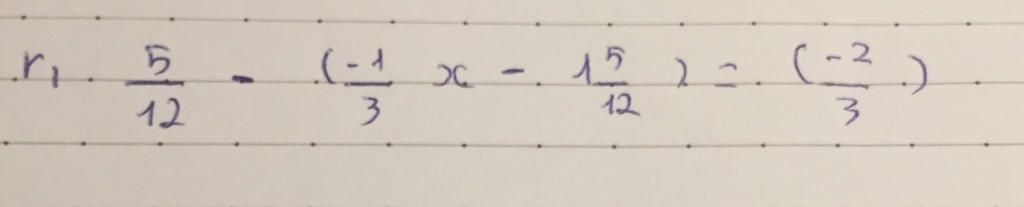 r, 5/12 - (-1/3 x - 1 5/12) = (-2/3)